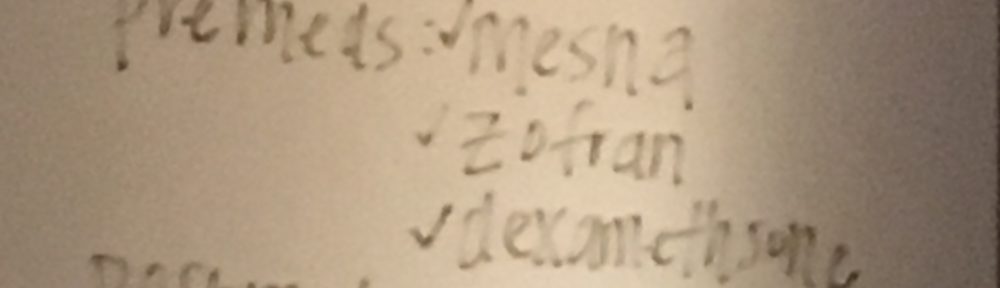 premeds: ✓mesna
✓ zofran
✓ dexamethsone